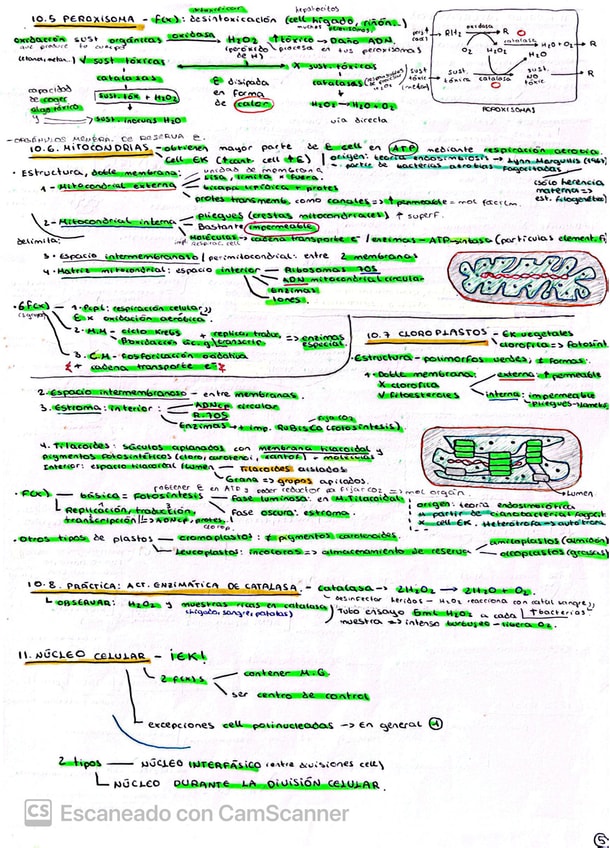 10.5 PEROXISOMA - f(x): desintoxicación (cell hígado, riñón..)
oxidación sust orgánicas oxidasa H2O2 ↑tóxico → Daño ADN.
que produce tu cuerpo
(peróxido de H)
procesa en tus peroxisomas
✓ sust tóxicas
X sust. tóxicas
catalasas
catalasas
capacidad
de coger
algo tóxico
y
sust. tóx + H2O2
sust. inervas H2O
E disipada
en forma
de calor
H2O2 → H2O + O2
vía directa
RH2 oxidasa R
catalasa
O2 H2O2 H2O + O2 → R
sust. tóxica
catalasa
sust. NO tóxic
PEROXISOMAS
10.6. MITOCONDRIAS - obtienen mayor parte de E cell en ATP mediante respiración aerobia.
cell EK
origen: teoría endosimbiosis → Lynn Margulis (1967)
a partir de bacterias aerobias fagocitadas
(sólo herencia
materna →
est. filogenética)
· Estructura, doble membrana:
unidad de membrana
1 - Mitocondrial externa
lisa, limita x fuera.
bicapa lipídica + protes
protes transmemb, como canales → ↑ permeable
2 - Mitocondrial interna
pliegues (crestas mitocondriales) ↑ superf.
Bastante impermeable
delimita:
Moléculas → cadena transporte e-/enzimas - ATP-sintasa (partículas element. f)
3. Espacio intermembranoso / perimitocondrial: entre 2 membranas
4. Matriz mitocondrial: espacio interior
Ribosomas 70S
ADN mitocondrial circular
Enzimas
Iones.
· 6 f(x)
1. Ppal: respiración celular,,
E x oxidación aeróbica.
2. M.M - ciclo Krebs
+ replicar, traduc, transcrip → enzimas especial.
3. C.M - fosforilación oxidativa
+ cadena transporte e-
10.7 CLOROPLASTOS - EK vegetales
clorofila → fotosínt
· Estructura - polimorfos verdes, ≠ formas.
1. Doble membrana:
externa: ↑ permeable
X clorofila
✓ fitoesteroles
interna: impermeable
2. Espacio intermembranoso - entre membranas.
3. Estroma: interior:
ADNcp circular
R. 70S
Enzimas → + imp. RUBISCO (fotosíntesis)
4. Tilacoides: sáculos aplanados con membrana tilacoidal y
pigmentos fotosintéticos (cloro, carotenoi, xantof) + moléculas
Interior: espacio tilacoidal / lumen
Tilacoides aislados
Grana → grupos apilados.
Lumen
· F(x)
básica = Fotosíntesis
obtener E en ATP y poder reductor → fijar CO2 → mol orgán.
Fase luminosa: en M. Tilacoidal
Fase oscura: estroma
Replicación, traducción,
transcripción → ADNcp, protes. clorop.
origen: teoría endosimbiótica
a partir de cianobacterias fagocit
x cell EK. Heterótrofa → autótrofa
· Otros tipos de plastos
cromoplastos: ≠ pigmentos carotenoides
Leucoplastos: incoloros → almacenamiento de reserva
amiloplastos (almidón)
oleoplastos (grasas)
10.8. PRÁCTICA: ACT. ENZIMÁTICA DE CATALASA. - catalasa → 2H2O2 → 2H2O + O2.
desinfectar heridas - H2O2 reacciona con catal sangre,,
OBSERVAR: H2O2 y muestras ricas en catalasa
(hígado, sangre, patatas)
Tubo ensayo 5mL H2O2 a cada
↑ bacterias
muestra → intenso burbujeo - libera O2.
11. NÚCLEO CELULAR - ¡EK!
2 f(x)s
contener M.G.
ser centro de control
excepciones cell polinucleadas → En general 1
2 tipos
NÚCLEO INTERFÁSICO (entre divisiones cell)
NÚCLEO DURANTE LA DIVISIÓN CELULAR.
CS Escaneado con CamScanner
5